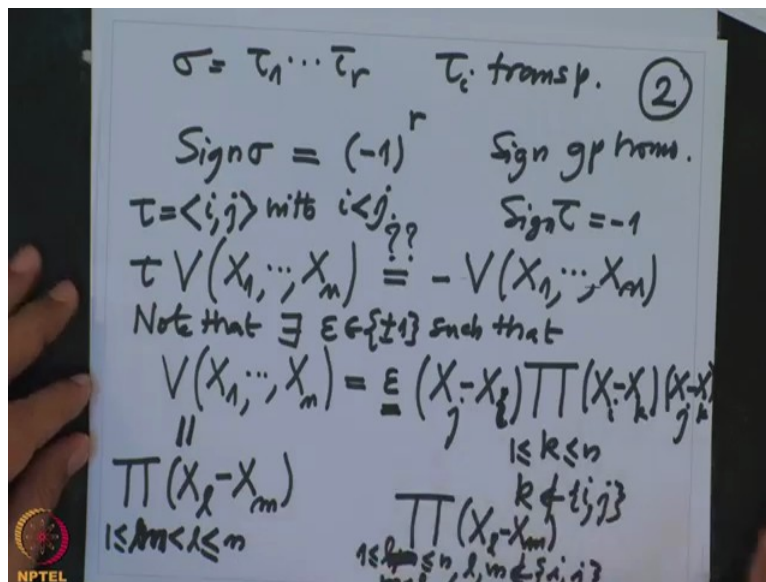 σ = τ₁ ⋯ τᵣ τᵢ transp. ②
Sign σ = (-1)ʳ Sign gp homs.
τ = <i,j> with i<j. Sign τ = -1
τ V(X₁, ⋯, Xₙ) =?? - V(X₁, ⋯, Xₙ)
Note that ∃ ε ∈ {±1} such that
V(X₁, ⋯, Xₙ) = ε (Xⱼ - Xᵢ) ∏ (Xᵢ - Xₖ)(Xⱼ - Xₖ)
|| 1≤k≤n
∏ (X_l - X_m) k ∉ {i,j}
1≤m<l≤n ∏ (X_l - X_m)
NPTEL